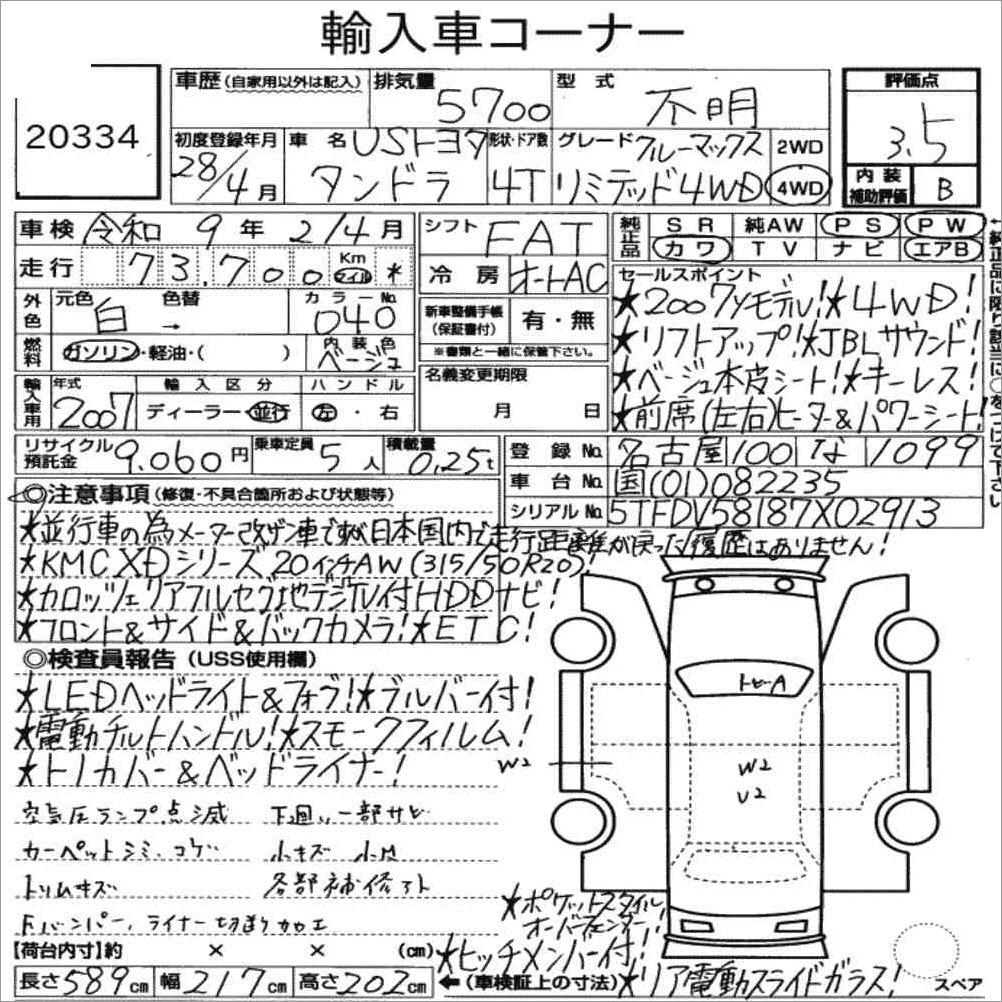 輸入車コーナー
20334
車歴 (自家用以外は記入) 排気量 5700 型式 不明
評価点 3.5
初度登録年月 28/4月 車名 USトヨタ タンドラ 形状・ドア数 4T グレード クルーマックス リミテッド4WD 2WD 4WD
内装補助評価 B
車検 令和 9年 2/4月 シフト FAT
純正品 SR 純AW PS PW
カワ TV ナビ エアB
走行 73,700 Km マイル *
冷房 オートAC
外色 元色 白 色替 → カラーNo. 040
新車整備手帳 (保証書付) 有・無
※書類と一緒に保管下さい。
燃料 ガソリン・軽油・( ) 内装色 ベージュ
セールスポイント
★2007yモデル!★4WD!
★リフトアップ!★JBLサウンド!
★ベージュ本皮シート!★キーレス!
★前席(左右)ヒーター&パワーシート!
輸入車用 年式 2007 輸入区分 ディーラー・並行 ハンドル 左・右
名義変更期限 月 日
リサイクル預託金 9,060円 乗車定員 5人 積載量 0.25t
登録No. 名古屋100 な 1099
車台No. 国(01)082235
シリアルNo. 5TFDV58187X02913
◎注意事項 (修復・不具合箇所および状態等)
★並行車の為メーター改ザン車ですが日本国内で走行距離が戻った履歴はありません!
★KMC XDシリーズ20インチAW(315/50R20)!
★カロッツェリアフルセグ地デジTV付HDDナビ!
★フロント&サイド&バックカメラ!★ETC!
◎検査員報告 (USS使用欄)
★LEDヘッドライト&フォグ!★ブルバー付!
★電動チルトハンドル!★スモークフィルム!
★トノカバー&ベッドライナー!
空気圧ランプ点滅 下廻り一部サビ
カーペットシミ、コゲ 小キズ 小凹
トリムキズ 各部補修アト
Fバンパー、ライナー切削り加工
トビーA
W2
W2
U2
★ポケットスタイル
オーバーフェンダー!
★ヒッチメンバー付!
★リア電動スライドガラス!
【荷台内寸】約 × × (cm)
長さ589cm 幅217cm 高さ202cm ←(車検証上の寸法)
スペア